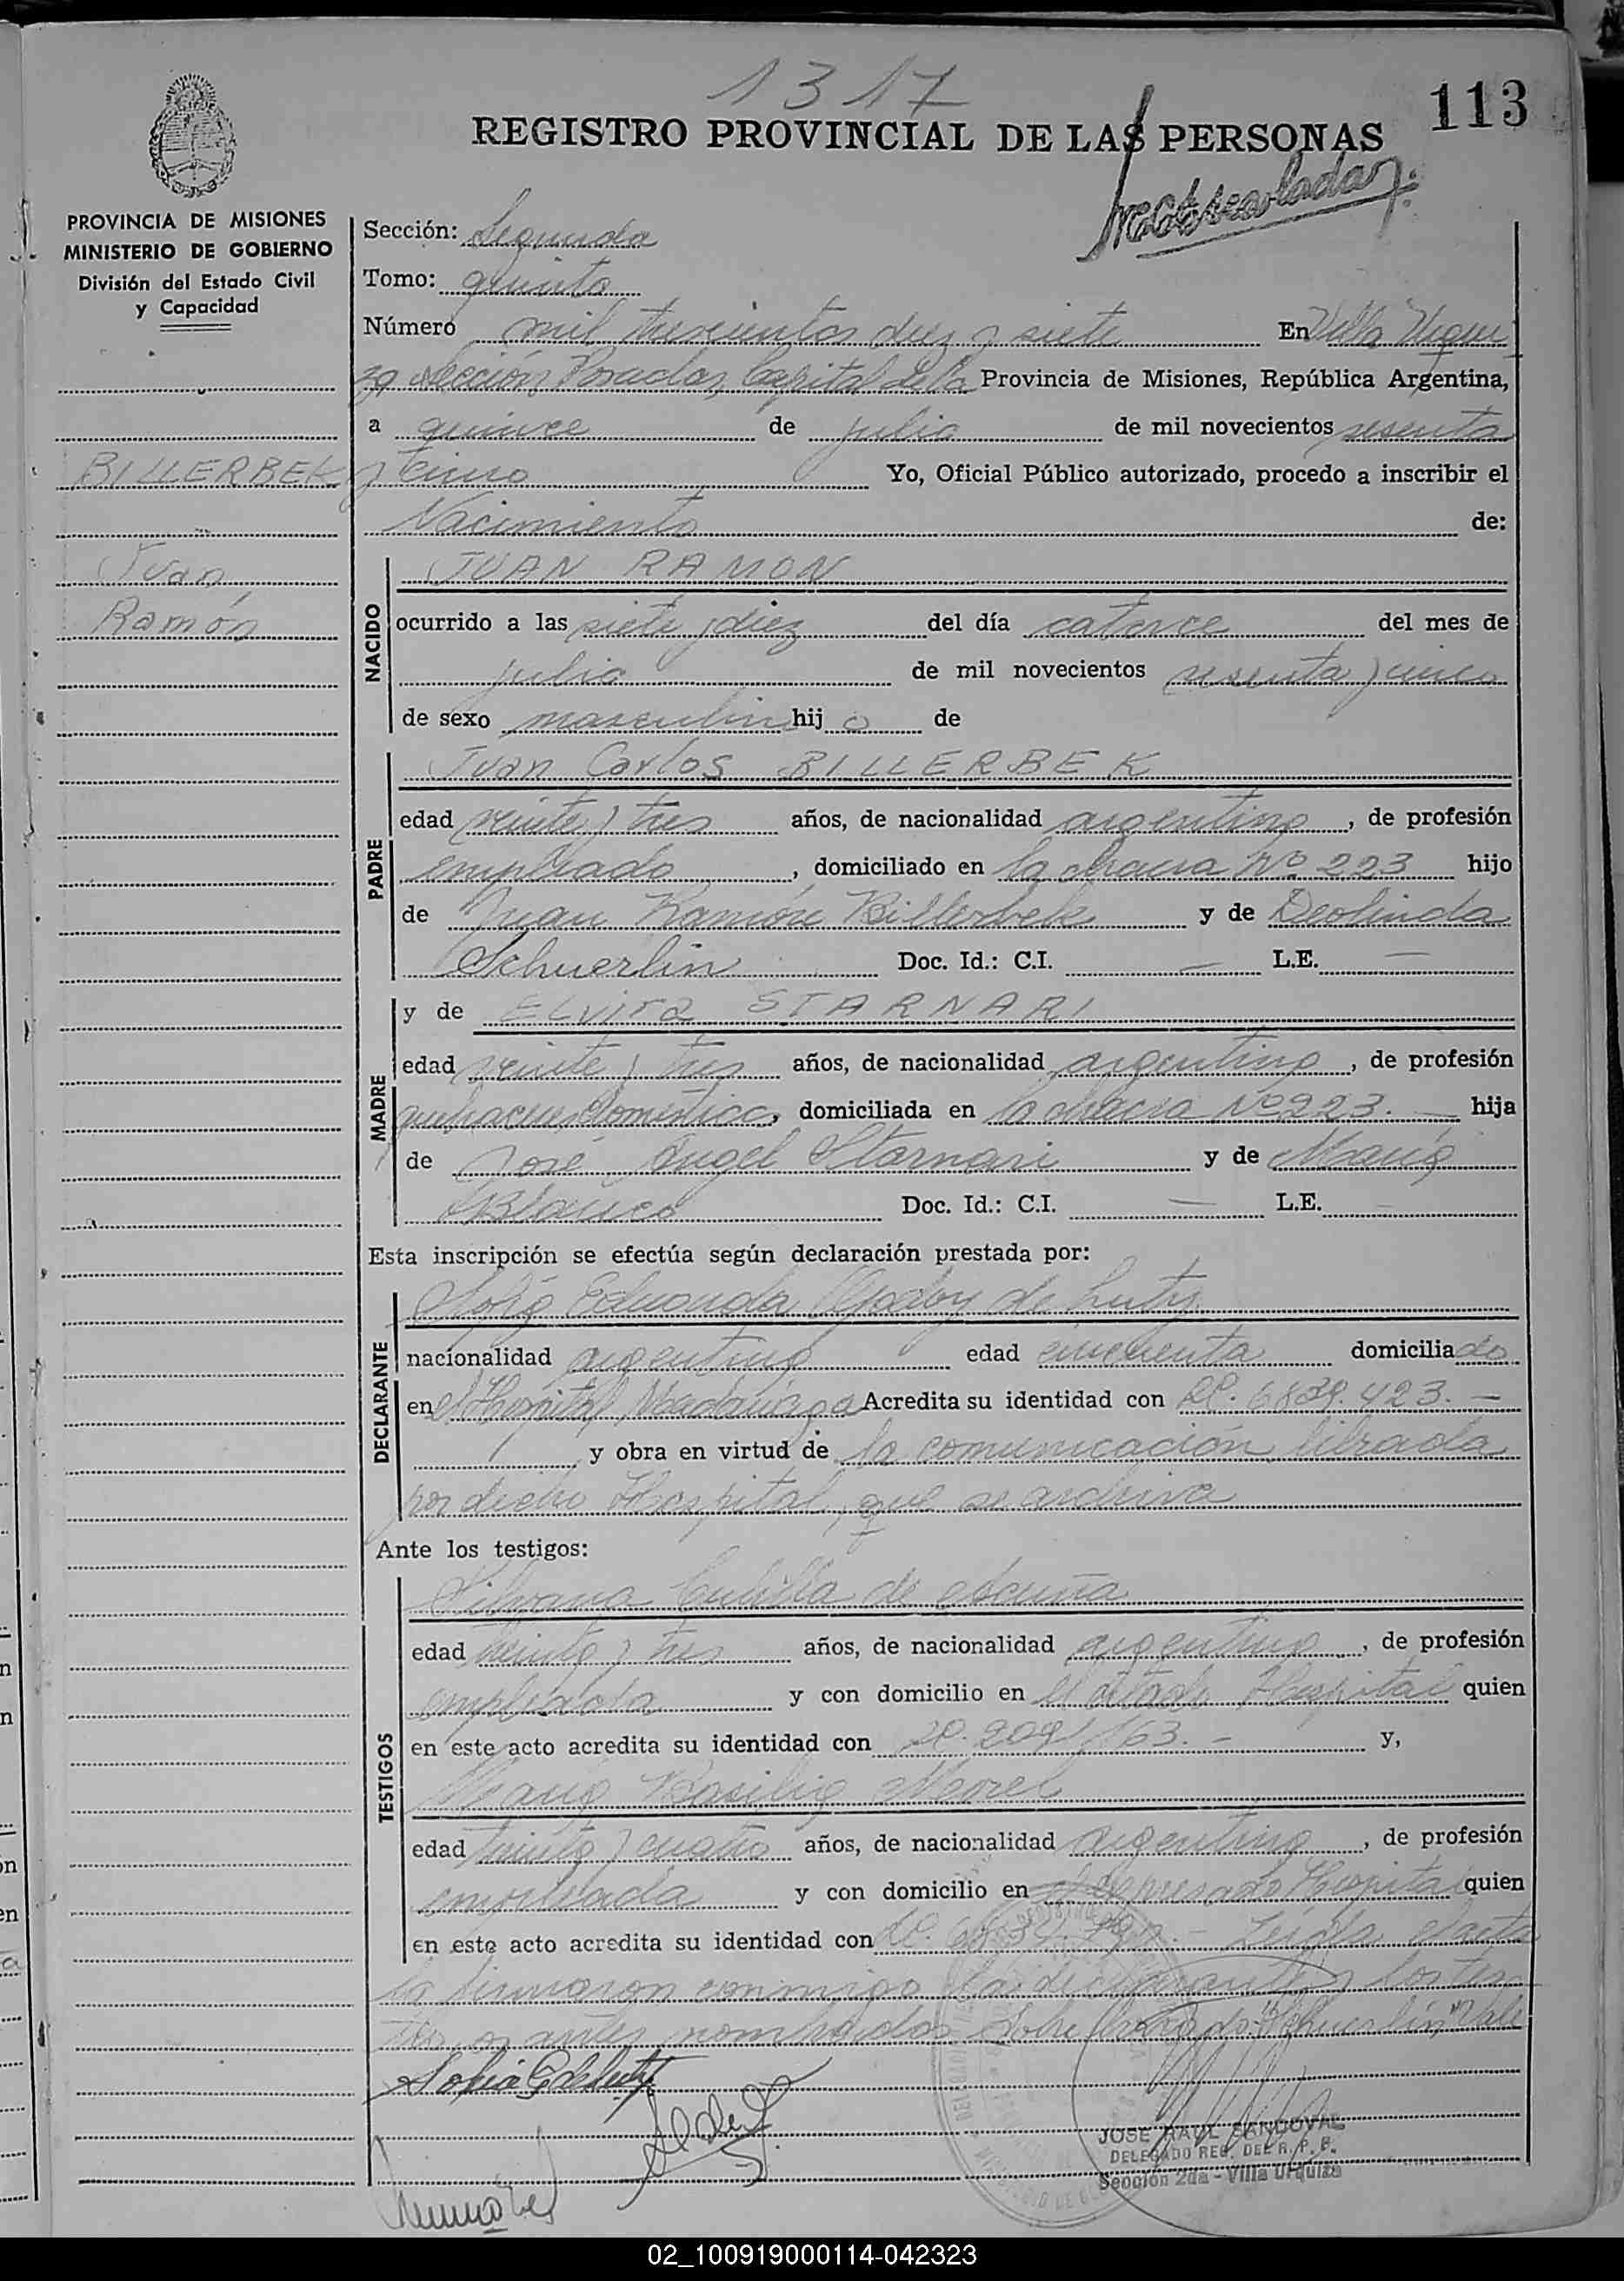 1317
113
REGISTRO PROVINCIAL DE LAS PERSONAS
PROVINCIA DE MISIONES
MINISTERIO DE GOBIERNO
División del Estado Civil
y Capacidad
BILLERBEK
Juan
Ramón
Sección: Segunda
Tomo: quinto
Número mil trescientos diez y siete En Villa Urqui
za Sección Posadas, Capital de la Provincia de Misiones, República Argentina,
a quince de julio de mil novecientos sesenta
y cinco Yo, Oficial Público autorizado, procedo a inscribir el
Nacimiento de:
NACIDO
JUAN RAMON
ocurrido a las siete y diez del día catorce del mes de
julio de mil novecientos sesenta y cinco
de sexo masculino hijo de
PADRE
Juan Carlos BILLERBEK
edad veinte y tres años, de nacionalidad argentino, de profesión
empleado, domiciliado en la chacra Nº 223 hijo
de Juan Ramón Billerbek y de Deolinda
Schuerlin Doc. Id.: C.I. — L.E. —
MADRE
y de Elvira STARNARI
edad veinte y tres años, de nacionalidad argentina, de profesión
quehaceres domésticos, domiciliada en la chacra Nº 223. — hija
de José Angel Starnari y de María
Blanco Doc. Id.: C.I. — L.E. —
Esta inscripción se efectúa según declaración prestada por:
DECLARANTE
Sofía Eduarda de
nacionalidad argentina edad cincuenta domiciliado
en el Hospital Madariaga Acredita su identidad con 6839.423. —
y obra en virtud de la comunicación librada
por dicho Hospital, que se archiva
Ante los testigos:
TESTIGOS
Silvana Cubilla de Acuña
edad veinte y tres años, de nacionalidad argentina, de profesión
empleada y con domicilio en el citado Hospital quien
en este acto acredita su identidad con y,
María Basilia Morel
edad treinta y cuatro años, de nacionalidad argentina, de profesión
empleada y con domicilio en el expresado Hospital quien
en este acto acredita su identidad con Leída el acta
la firmaron conmigo la declarante y los tes
tigos antes nombrados Sobre borrado: "Schuerlin" Vale
JOSE RAUL SANDOVAL
DELEGADO REG. DEL R. P. P.
Sección 2da - Villa Urquiza
02_100919000114-042323